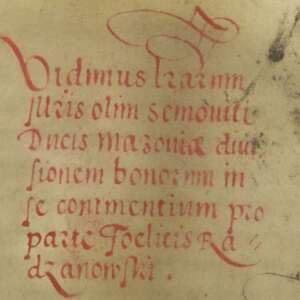 Vidimus lrarum
Illris olim Semoviti
Ducis Mazoviæ divi
sionem bonorum in
se continentium pro
parte Foelicis Ra
dzanowski.